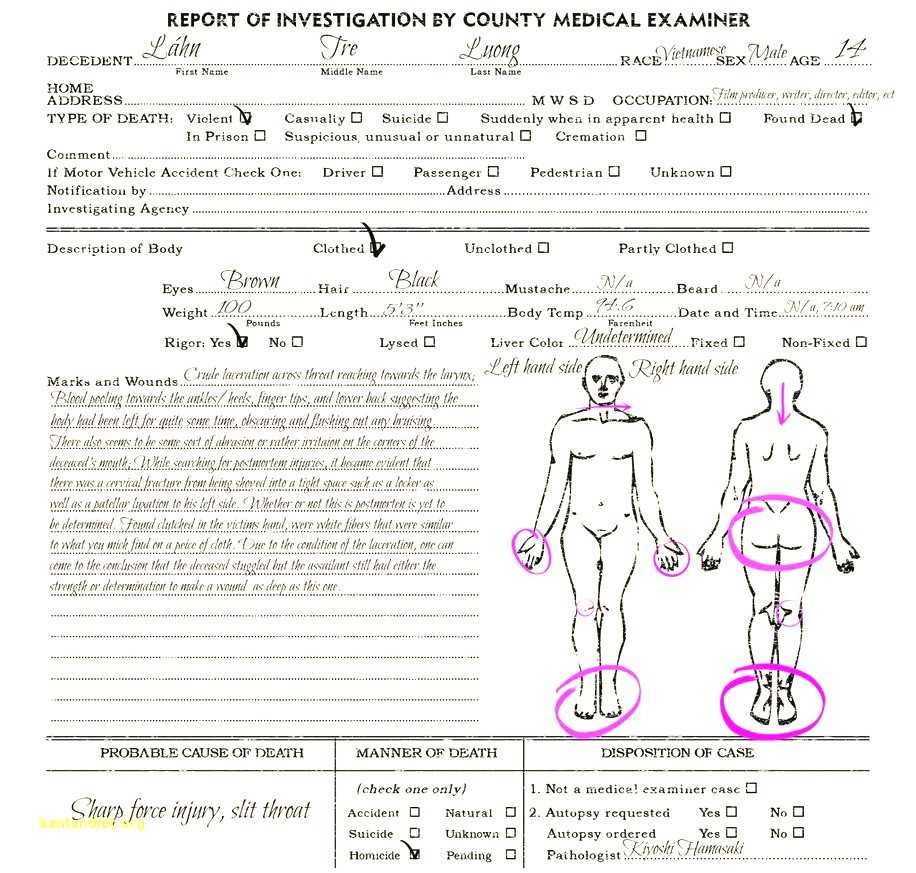 REPORT OF INVESTIGATION BY COUNTY MEDICAL EXAMINER
DECEDENT Láhn Tre Luong RACE Vietnamese SEX Male AGE 14
First Name Middle Name Last Name
HOME
ADDRESS M W S D OCCUPATION: Film producer, writer, director, editor, ect
TYPE OF DEATH: Violent Casualty Suicide Suddenly when in apparent health Found Dead
In Prison Suspicious, unusual or unnatural Cremation
Comment
If Motor Vehicle Accident Check One: Driver Passenger Pedestrian Unknown
Notification by Address
Investigating Agency
Description of Body Clothed Unclothed Partly Clothed
Eyes Brown Hair Black Mustache N/a Beard N/a
Weight 100 Length 5'3" Body Temp 94.6 Date and Time N/a, 7:10 am
Pounds Feet Inches Farenheit
Rigor: Yes No Lysed Liver Color Undetermined Fixed Non-Fixed
Left hand side Right hand side
Marks and Wounds Crude laceration across throat reaching towards the larynx;
Blood pooling towards the ankles/ heels, finger tips, and lower back suggesting the
body had been left for quite some time, obscuring and flushing out any bruising.
There also seems to be some sort of abrasion or rather irritaion on the corners of the
deceased's mouth; While searching for postmortem injuries, it became evident that
there was a cervical fracture from being shoved into a tight space such as a locker as
well as a patellar luxation to his left side. Whether or not this is postmorten is yet to
be determined. Found clutched in the victims hand, were white fibers that were similar
to what you mick find on a peice of cloth. Due to the condition of the laceration, one can
come to the conclusion that the deceased stuggled but the assailant still had either the
strength or determination to make a wound as deep as this one.
PROBABLE CAUSE OF DEATH MANNER OF DEATH DISPOSITION OF CASE
(check one only) 1. Not a medical examiner case
Sharp force injury, slit throat Accident Natural 2. Autopsy requested Yes No
Suicide Unknown Autopsy ordered Yes No
Homicide Pending Pathologist Kiyoshi Hamasaki